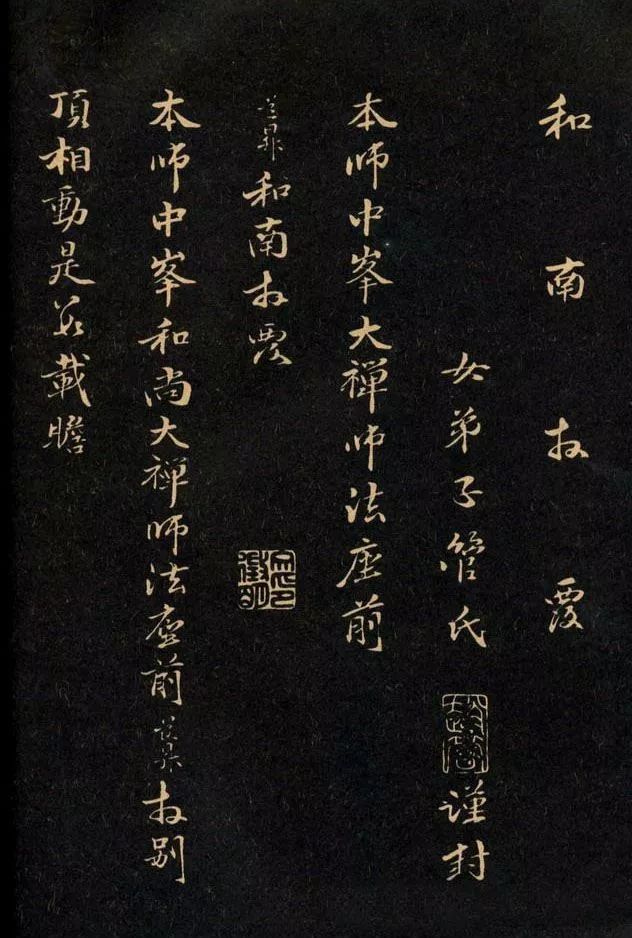 和南拜覆
女弟子管氏 謹封
本師中峯大禪師法座前
道昇和南拜覆
本師中峯和尚大禪師法座前道昇拜别
頂相動是數載瞻